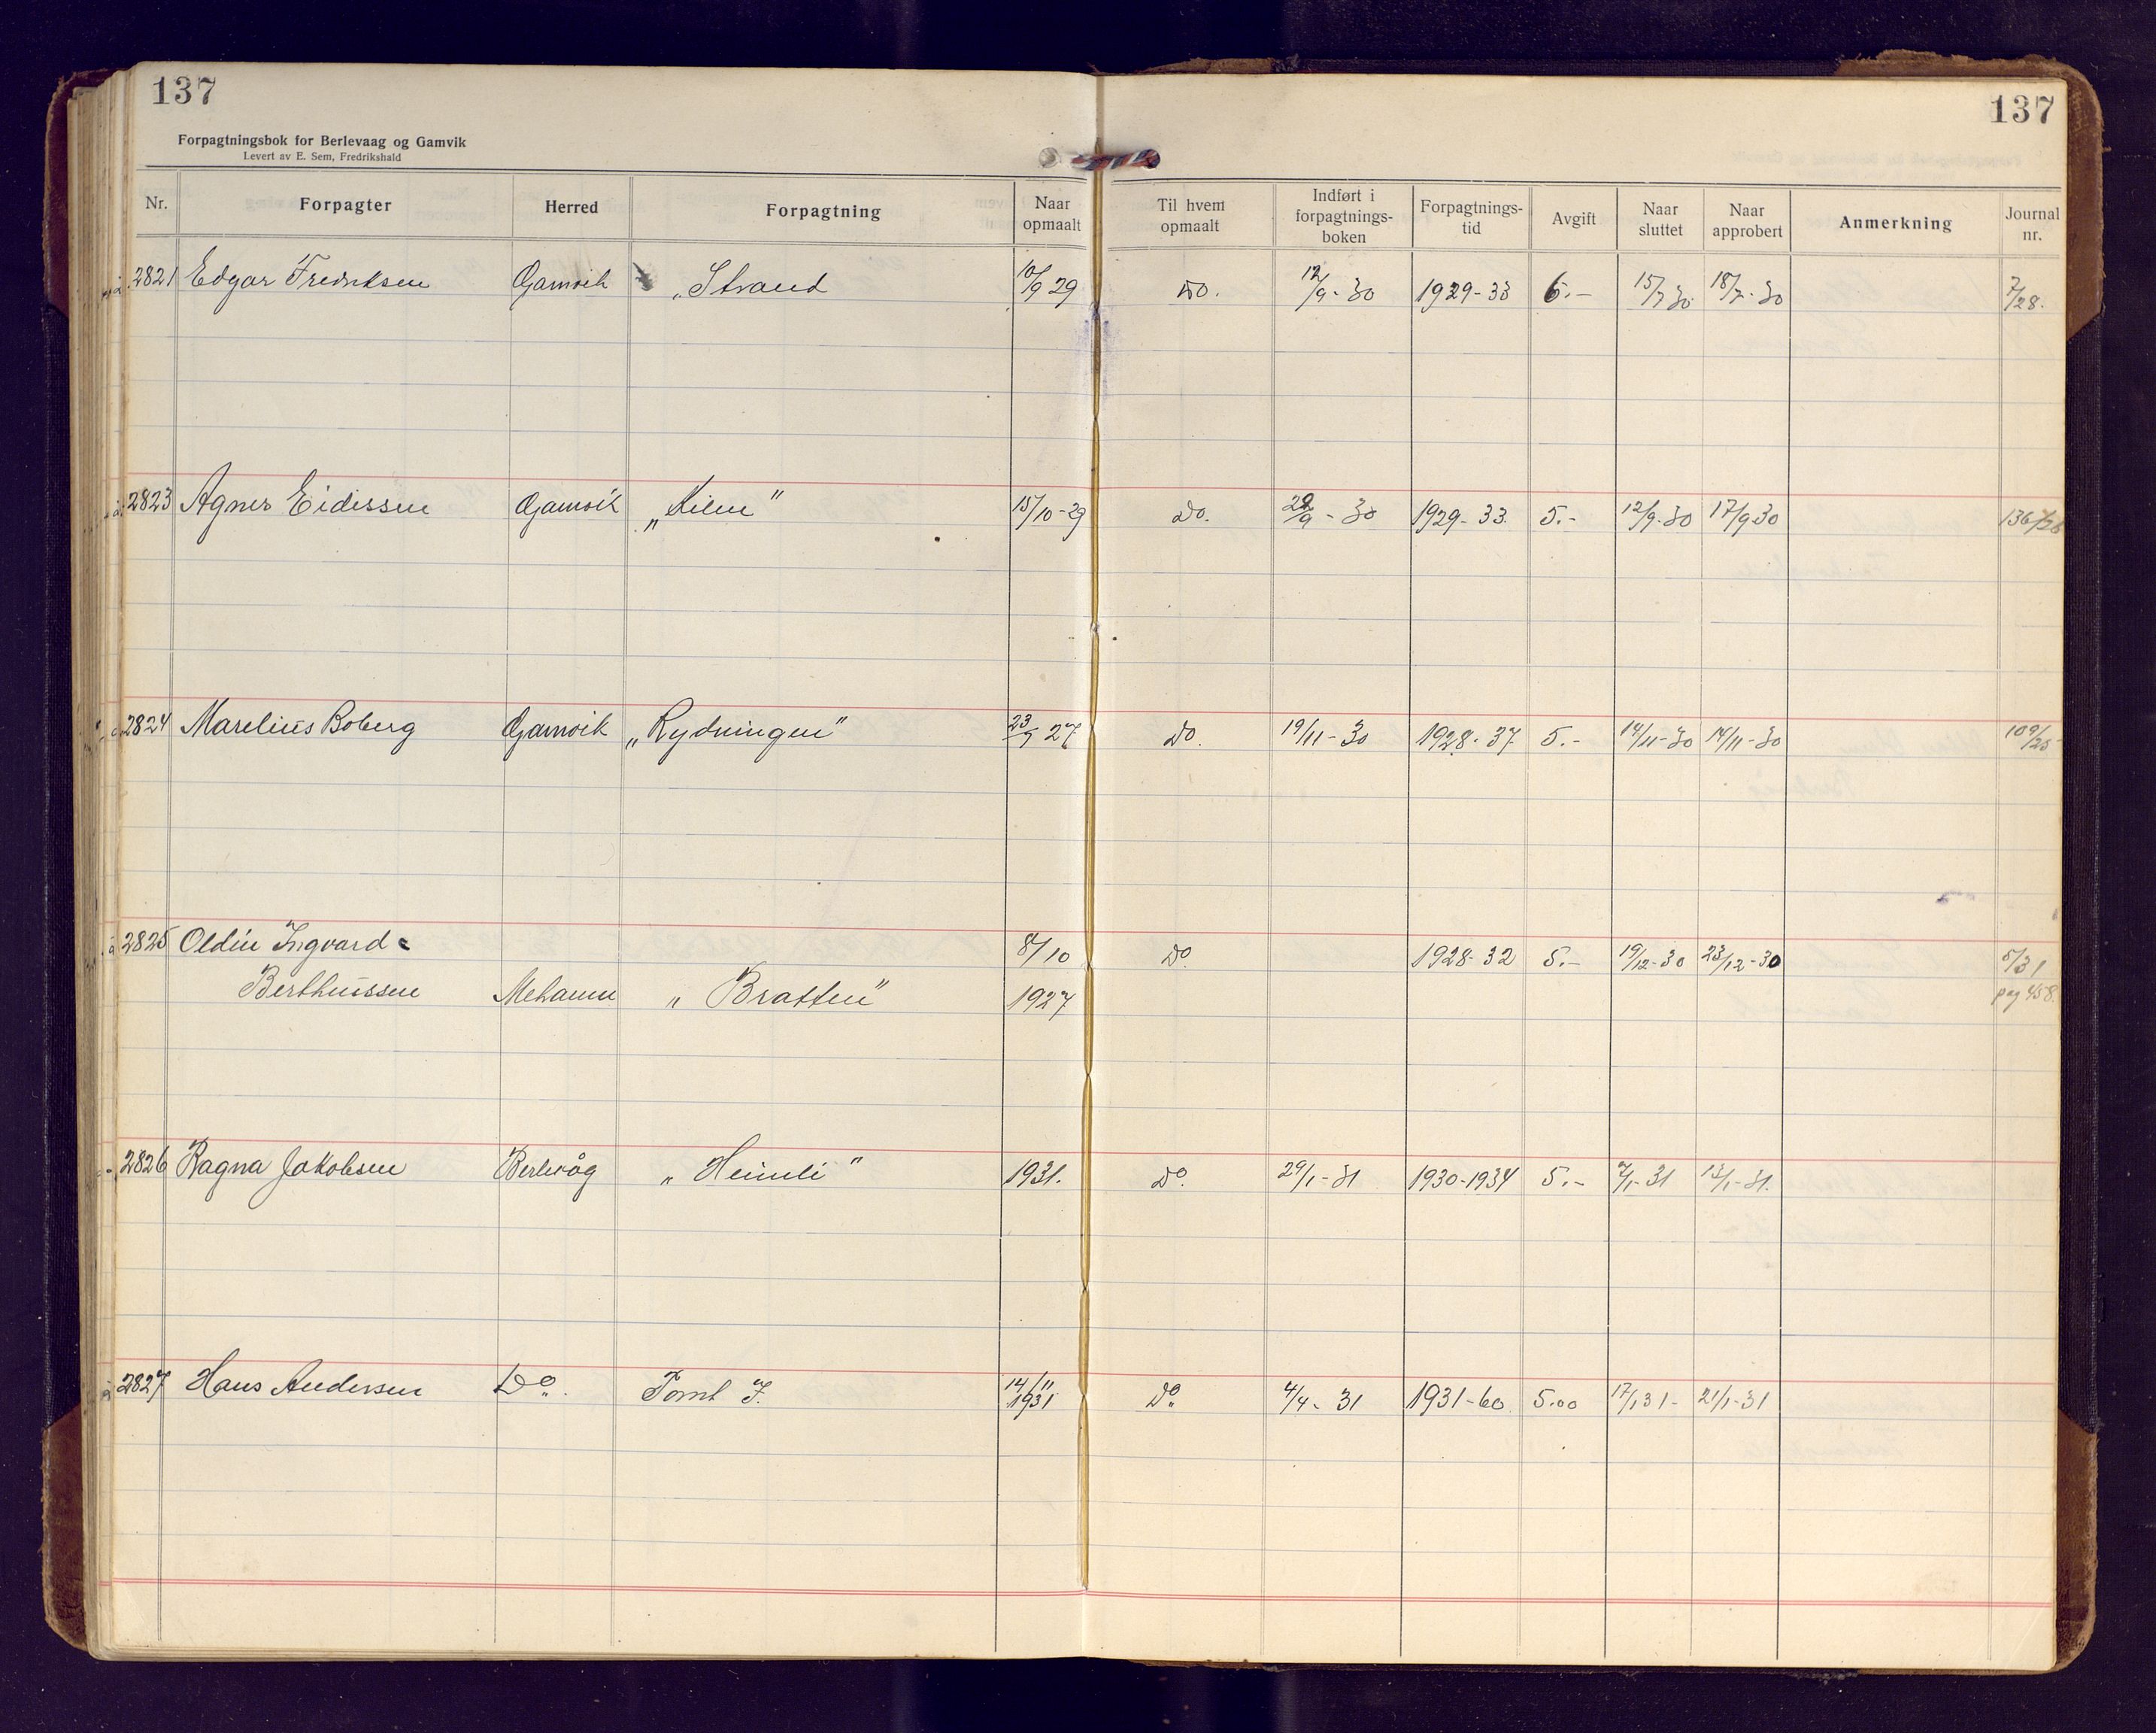 137
137
Forpagtningsbok for Berlevaag og Gamvik
Levert av E. Sem, Fredrikshald
Nr. Forpagter Herred Forpagtning Naar opmaalt Til hvem opmaalt Indført i forpagtnings-boken Forpagtnings-tid Avgift Naar sluttet Naar approbert Anmerkning Journal nr.
2821 Edgar Fredriksen Gamvik „Strand 10/9 29 Do. 12/9-30 1929-33 6.- 15/7 30 18/7-30 7/28.
2823 Agnes Eidissen Gamvik „Kilen" 15/10-29 Do. 22/9-30 1929-33. 5.- 12/9-30 17/9 30 136/28
2824 Marelius Boberg Gamvik „Rydningen" 23/9 27 Do. 19/11-30 1928-37 5.- 14/11-30 14/11-30 109/25
2825 Oldin Ingvard 8/10 Do. 1928-32 5.- 19/12-30 23/12-30 5/31
Berthussen Mehamn „Bratten" 1927 pag 458.
2826 Ragna Jakobsen Berlevåg „Heimli" 1931. Do. 29/1-31 1930-1934 5.- 7/1-31 13/1-31.
2827 Hans Andersen Do. Tomt 7. 14/11 1931 Do 4/4-31 1931-60 5.00 17/1 31- 21/1-31